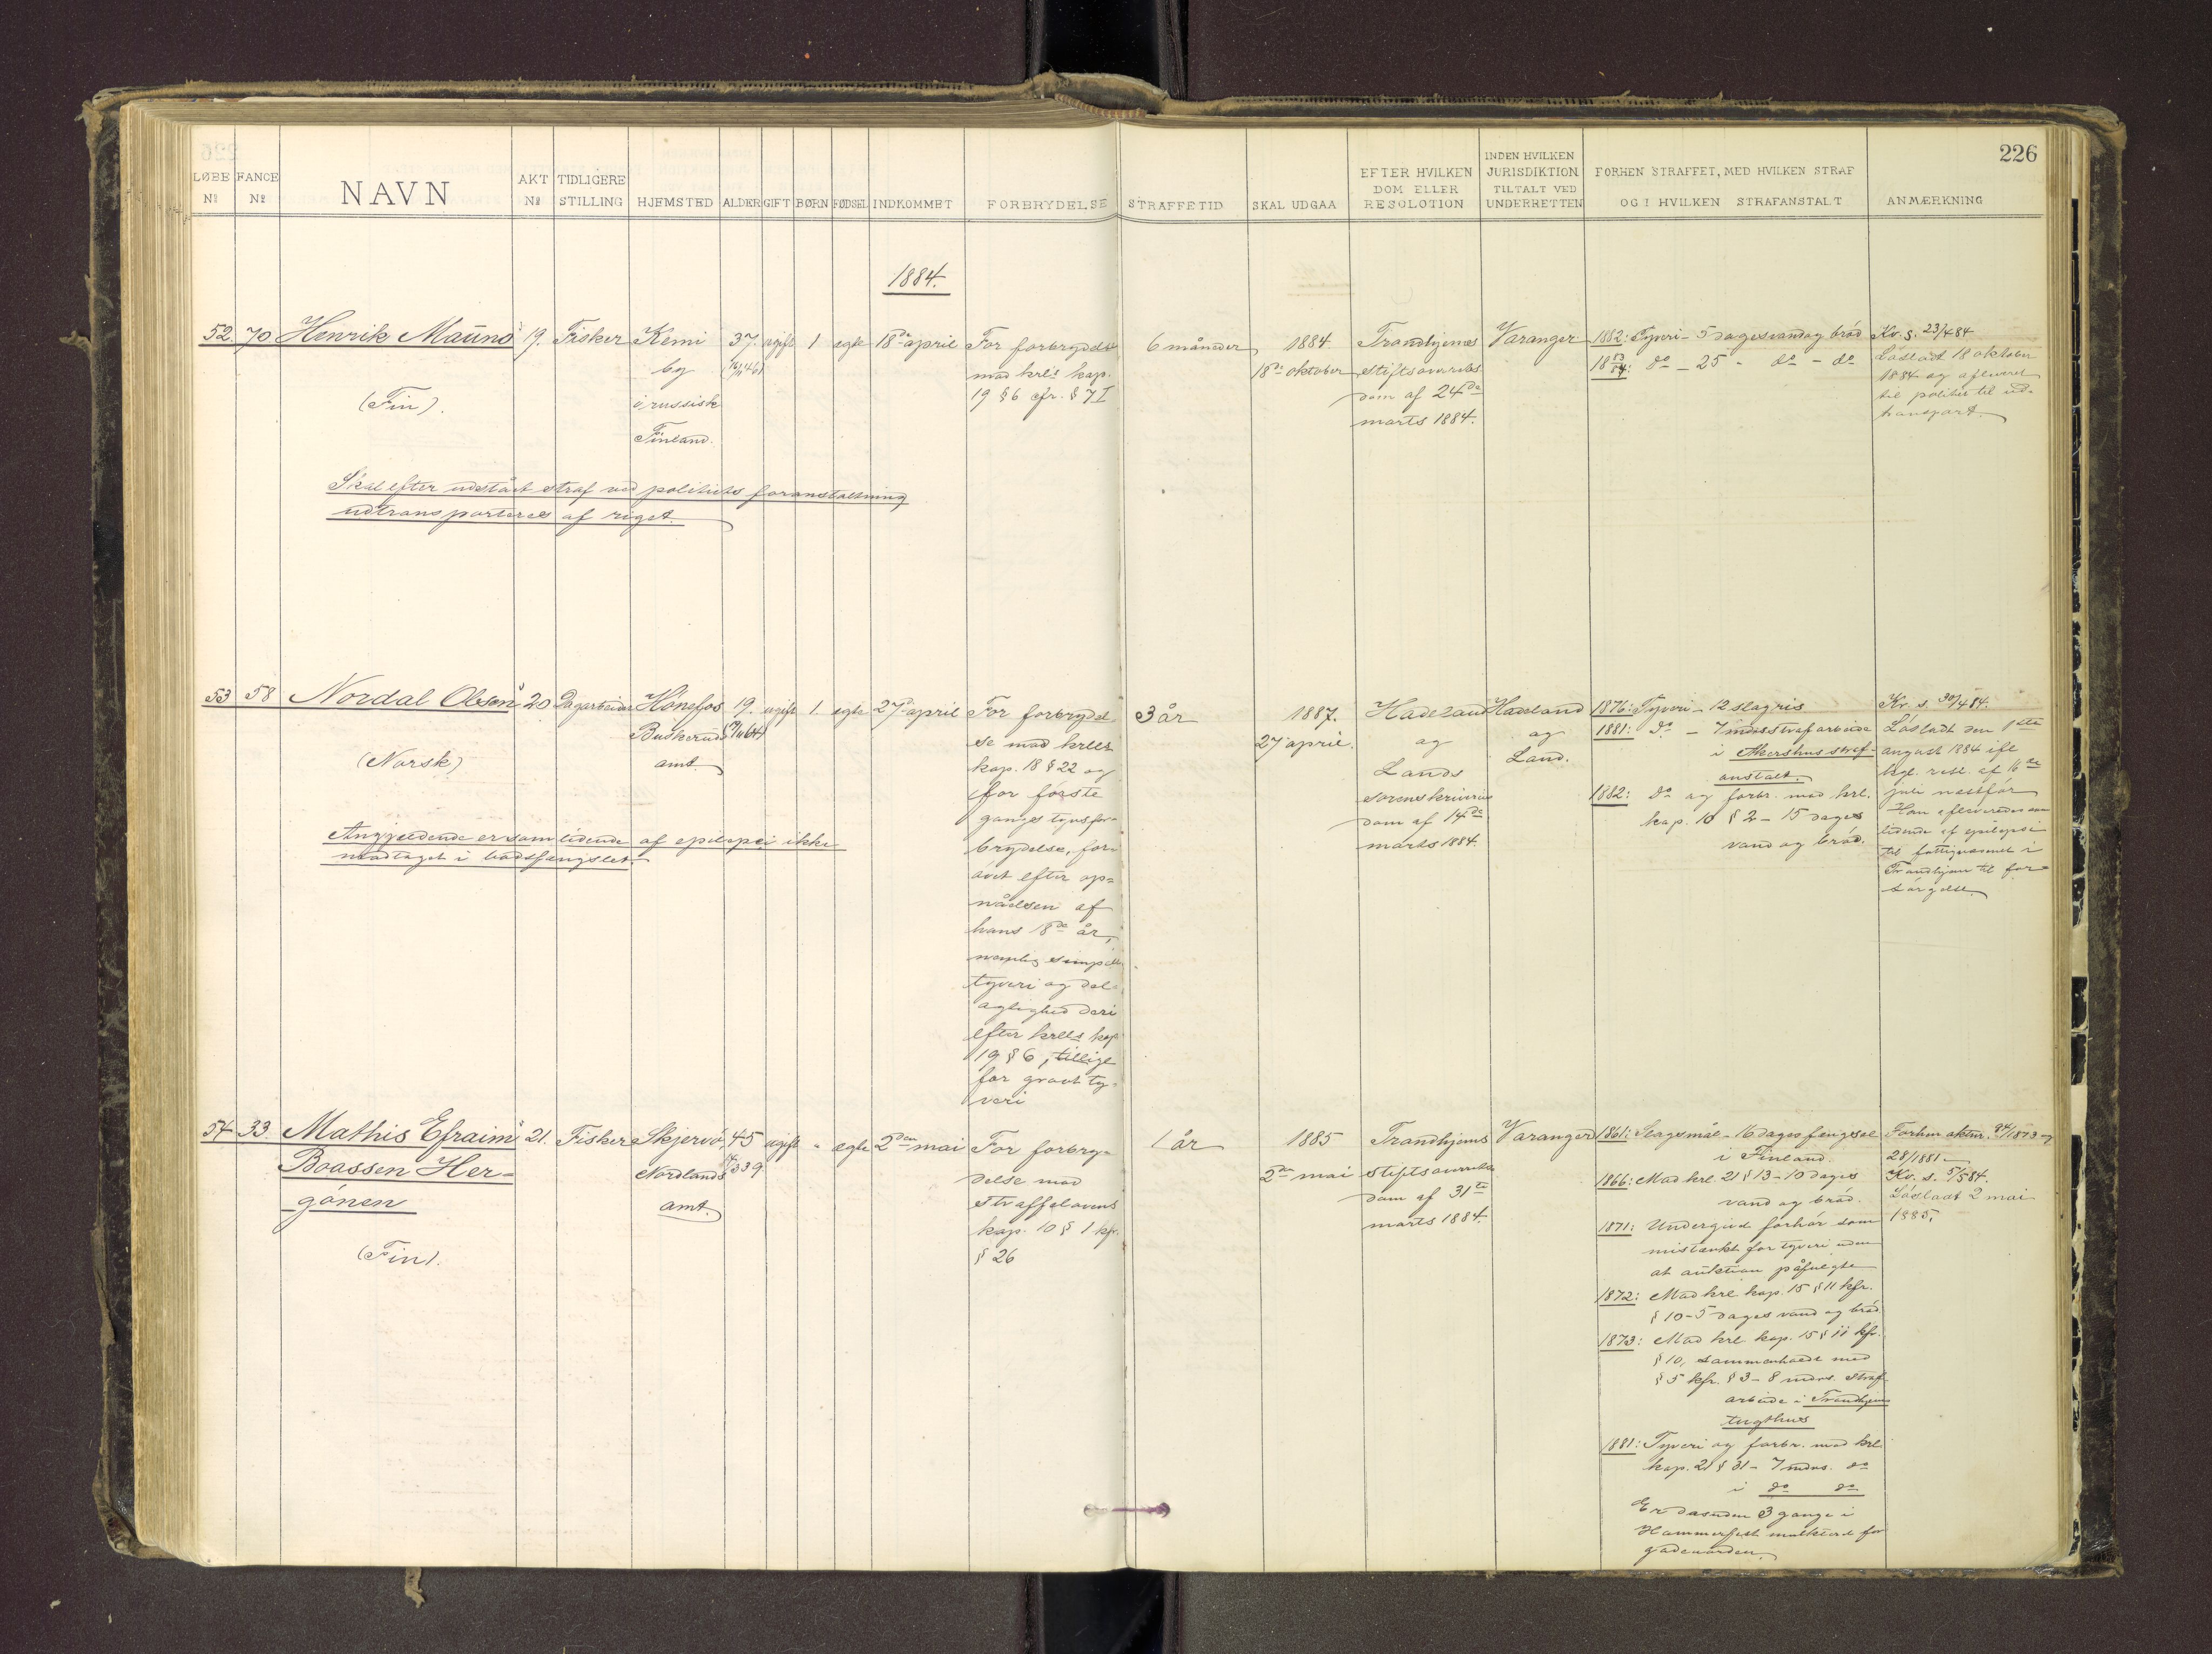 226
LØBE Nº
FANGE Nº
NAVN
AKT Nº
TIDLIGERE STILLING
HJEMSTED
ALDER
GIFT
BØRN
FØDSEL
INDKOMMET
FORBRYDELSE
STRAFFETID
SKAL UDGAA
EFTER HVILKEN DOM ELLER RESOLUTION
INDEN HVILKEN JURISDIKTION TILTALT VED UNDERRETTEN
FORHEN STRAFFET, MED HVILKEN STRAF OG I HVILKEN STRAFANSTALT
ANMÆRKNING
1884.
52. 70
Henrik Mauno
(Fin).
19.
Fisker
Kemi
by
i russisk
Finland.
37.
ugift
1
egte
18de april
For forbrydelse
mod krls kap.
19 § 6 cfr. § 7 I
6 måneder
1884
18de oktober
Trondhjems
stiftsoverrets
dom af 24de
marts 1884.
Varanger
1882: Tyveri - 5 dages vand og bród
18 83/84: do - 25 - do - do
Kv. s. 23/4 84
Lósladt 18 oktober
1884 og afleveret
til politiet til ud-
transport.
Skal efter udstået straf ved politiets foranstaltning
udtransporteres af riget.
53 58
Nordal Olsen
(Norsk)
20
Dagarbeider
Hónefos
Buskeruds
amt.
19.
ugift
1.
egte
27de april
For forbrydel-
se mod krls
kap. 18 § 22 og
for fórste
gangs tyvsfor-
brydelse, for-
óvet efter op-
nåelsen af
hans 18de år,
nemlig simpelt
tyveri og del-
agtighed deri
efter krls kap
19 § 6, tillige
for grovt ty-
veri
3 år
1887.
27 april.
Hadeland
og
Lands
sorenskriveries
dom af 14de
marts 1884.
Hadeland
og
Land.
1876: Tyveri - 12 slag ris
1881: do - 7 mdrs strafarbeide
i Akershus straf-
anstalt.
1882: do og forbr. mod krl.
kap. 10 § 2 - 15 dages
vand og bród.
Kv. s. 30/4 84.
Lósladt den 1ste
august 1884 ifl
kgl. resl. af 16de
juli næstfór
Han afleveredes som
lidende af epilepsi
til fattigvæsenet i
Trondhjem til for-
sórgelse.
Angjældende er som lidende af epilepsi ikke
modtaget i bodsfængslet.
54 33.
Mathis Efraim
Boassen Her-
gónen
(Fin).
21.
Fisker
Skjervó,
Nordlands
amt.
45
ugift
-
egte
2den mai
For forbry-
delse mod
straffelovens
kap. 10 § 1 kfr.
§ 26
1 år
1885
2den mai
Trondhjems
stiftsoverrets
dom af 31te
marts 1884.
Varanger
1861: Slagsmål - 16 dages fengsel
i Finland.
1866: Mod krl. 21 § 13 - 10 dages
vand og bród.
1871: Undergivet forhór som
mistænkt for tyveri uden
at auktion påfulgte
1872: Mod krl kap. 15 § 11 kfr.
§ 10 - 5 dages vand og bród.
1873: Mod krl kap. 15 § 11 kfr.
§ 10, sammenholdt med
§ 5 kfr. § 3 - 8 mdrs. straf-
arbeide i Trondhjems
tugthus
1881: Tyveri og forbr. mod krl.
kap. 21 § 31 - 7 mdrs. do
i do do
Er desuden 3 gange i
Hammerfest mulkteret for
gadeuorden.
28/1881.
Kv. s. 5/5 84.
Lósladt 2 mai
1885.